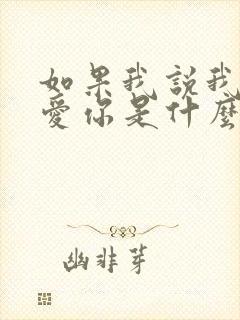 如果我説我
愛你是什麼
幽非芽